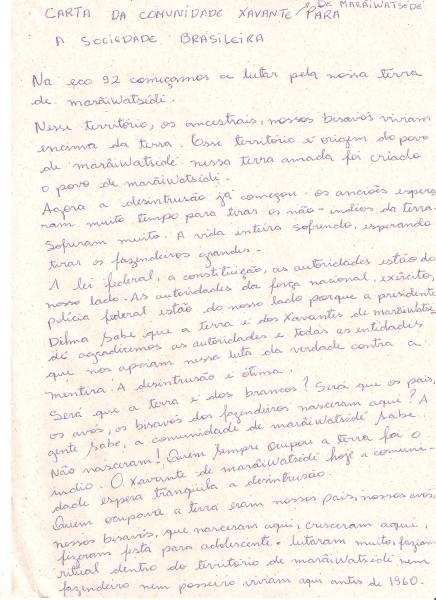 CARTA DA COMUNIDADE XAVANTE DE MARÃIWATSÉDÉ PARA
A SOCIEDADE BRASILEIRA
Na eco 92 começamos a lutar pela nossa terra
de marãiwatsédi.
Nesse território, os ancestrais, nossos bisavós viviam
encima da terra. Esse território é origem do povo
de marãiwatsédé nessa terra amada foi criado
o povo de marãiwatsédi.
Agora a desintrusão já começou. os anciões espera
ram muito tempo para tirar os não-indios da terra.
Sofreram muito. A vida inteira sofrendo, esperando
tirar os fazendeiros grandes.
A lei federal, a constituição, as autoridades estão do
nosso lado. As autoridades da força nacional, exército,
polícia federal estão do nosso lado porque a presidente
Dilma sabe que a terra é dos Xavantes de marãiwatsé
dé agradecemos as autoridades e todas as entidades
que nos apoiam nessa luta da verdade contra a
mentira. A desintrusão é ótima.
Será que a terra é dos brancos? Será que os pais,
os avós, os bisavós dos fazendeiros nasceram aqui? A
gente sabe, a comunidade de marãiwatsédé sabe.
Não nasceram! Quem sempre ocupou a terra foi o
indio. O Xavante de marãiwatsédé hoje a comuni-
dade espera tranqüila a desintrusão.
Quem ocupava a terra eram nossos pais, nossos avós,
nossos bisavós, que nasceram aqui, cresceram aqui,
fizeram festa para adolescente. lutaram muito, faziam
ritual dentro do território de marãiwatsédé nem
fazendeiro nem posseiro viviam aqui antes de 1960.